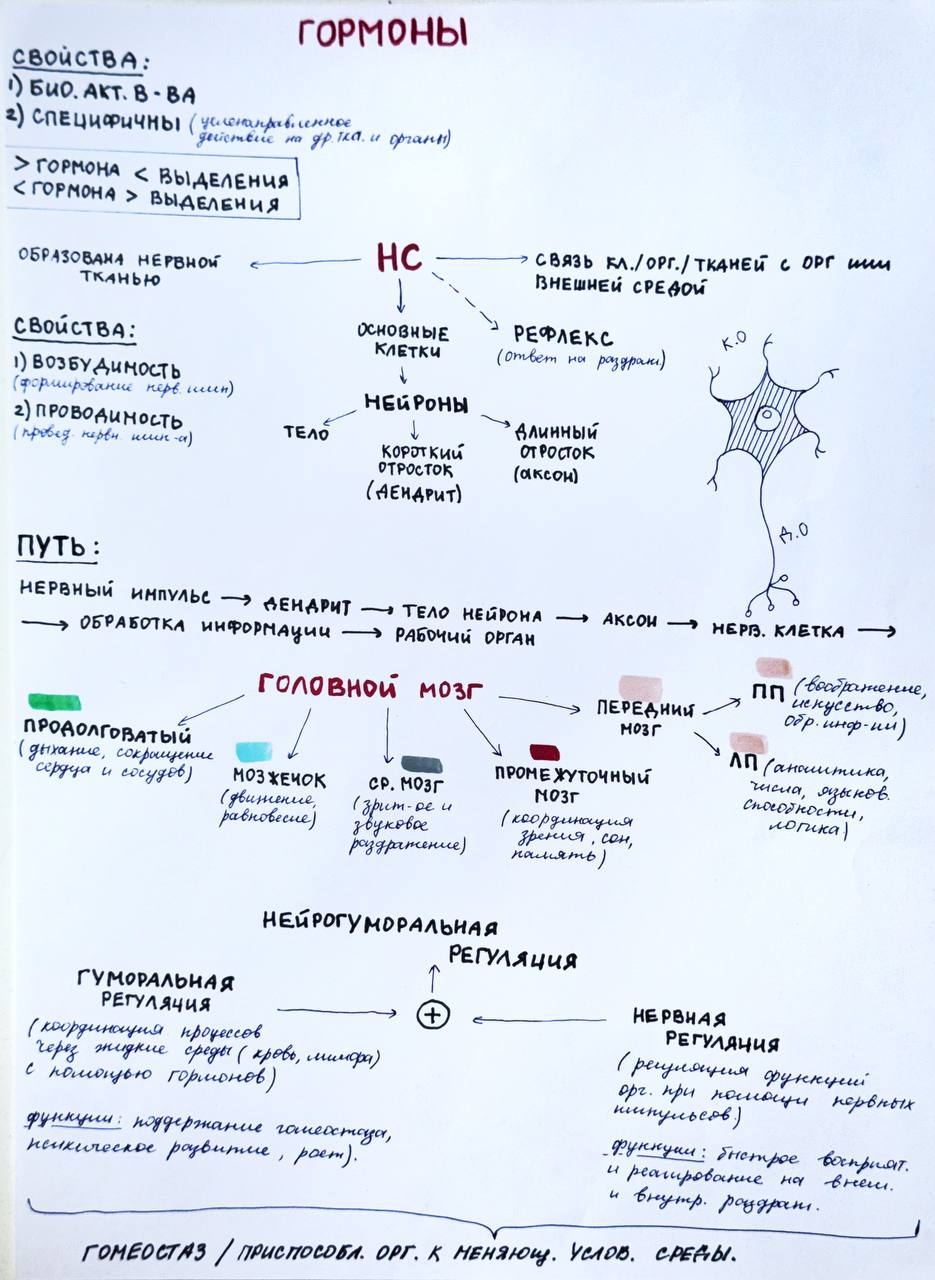 ГОРМОНЫ
СВОЙСТВА:
1) БИО. АКТ. В-ВА
2) СПЕЦИФИЧНЫ (целенаправленное
действие на др. тка. и органы)
> ГОРМОНА < ВЫДЕЛЕНИЯ
< ГОРМОНА > ВЫДЕЛЕНИЯ
ОБРАЗОВАНА НЕРВНОЙ
ТКАНЬЮ
НС
СВЯЗЬ КЛ./ОРГ./ТКАНЕЙ С ОРГ ИЛИ
ВНЕШНЕЙ СРЕДОЙ
СВОЙСТВА:
1) ВОЗБУДИМОСТЬ
(формирование нерв. имп)
2) ПРОВОДИМОСТЬ
(провед. нервн. имп-а)
ОСНОВНЫЕ
КЛЕТКИ
РЕФЛЕКС
(ответ на раздраж)
НЕЙРОНЫ
ТЕЛО
КОРОТКИЙ
ОТРОСТОК
(ДЕНДРИТ)
ДЛИННЫЙ
ОТРОСТОК
(АКСОН)
К.О
Д.О
ПУТЬ:
НЕРВНЫЙ ИМПУЛЬС → ДЕНДРИТ → ТЕЛО НЕЙРОНА → АКСОН → НЕРВ. КЛЕТКА →
→ ОБРАБОТКА ИНФОРМАЦИИ → РАБОЧИЙ ОРГАН
ГОЛОВНОЙ МОЗГ
ПРОДОЛГОВАТЫЙ
(дыхание, сокращение
сердца и сосудов)
МОЗЖЕЧОК
(движение,
равновесие)
СР. МОЗГ
(зрит-ое и
звуковое
раздражение)
ПРОМЕЖУТОЧНЫЙ
МОЗГ
(координация
зрения, сон,
память)
ПЕРЕДНИЙ
МОЗГ
ПП (воображение,
искусство,
обр. инф-ии)
ЛП (аналитика,
числа, языков.
способности,
логика)
НЕЙРОГУМОРАЛЬНАЯ
РЕГУЛЯЦИЯ
ГУМОРАЛЬНАЯ
РЕГУЛЯЦИЯ
(координация процессов
через жидкие среды (кровь, лимфа)
с помощью гормонов)
функции: поддержание гомеостаза,
психическое развитие, рост).
+
НЕРВНАЯ
РЕГУЛЯЦИЯ
(регуляция функций
орг. при помощи нервных
импульсов.)
функции: быстрое восприят.
и реагирование на внеш.
и внутр. раздраж.
ГОМЕОСТАЗ / ПРИСПОСОБЛ. ОРГ. К МЕНЯЮЩ. УСЛОВ. СРЕДЫ.